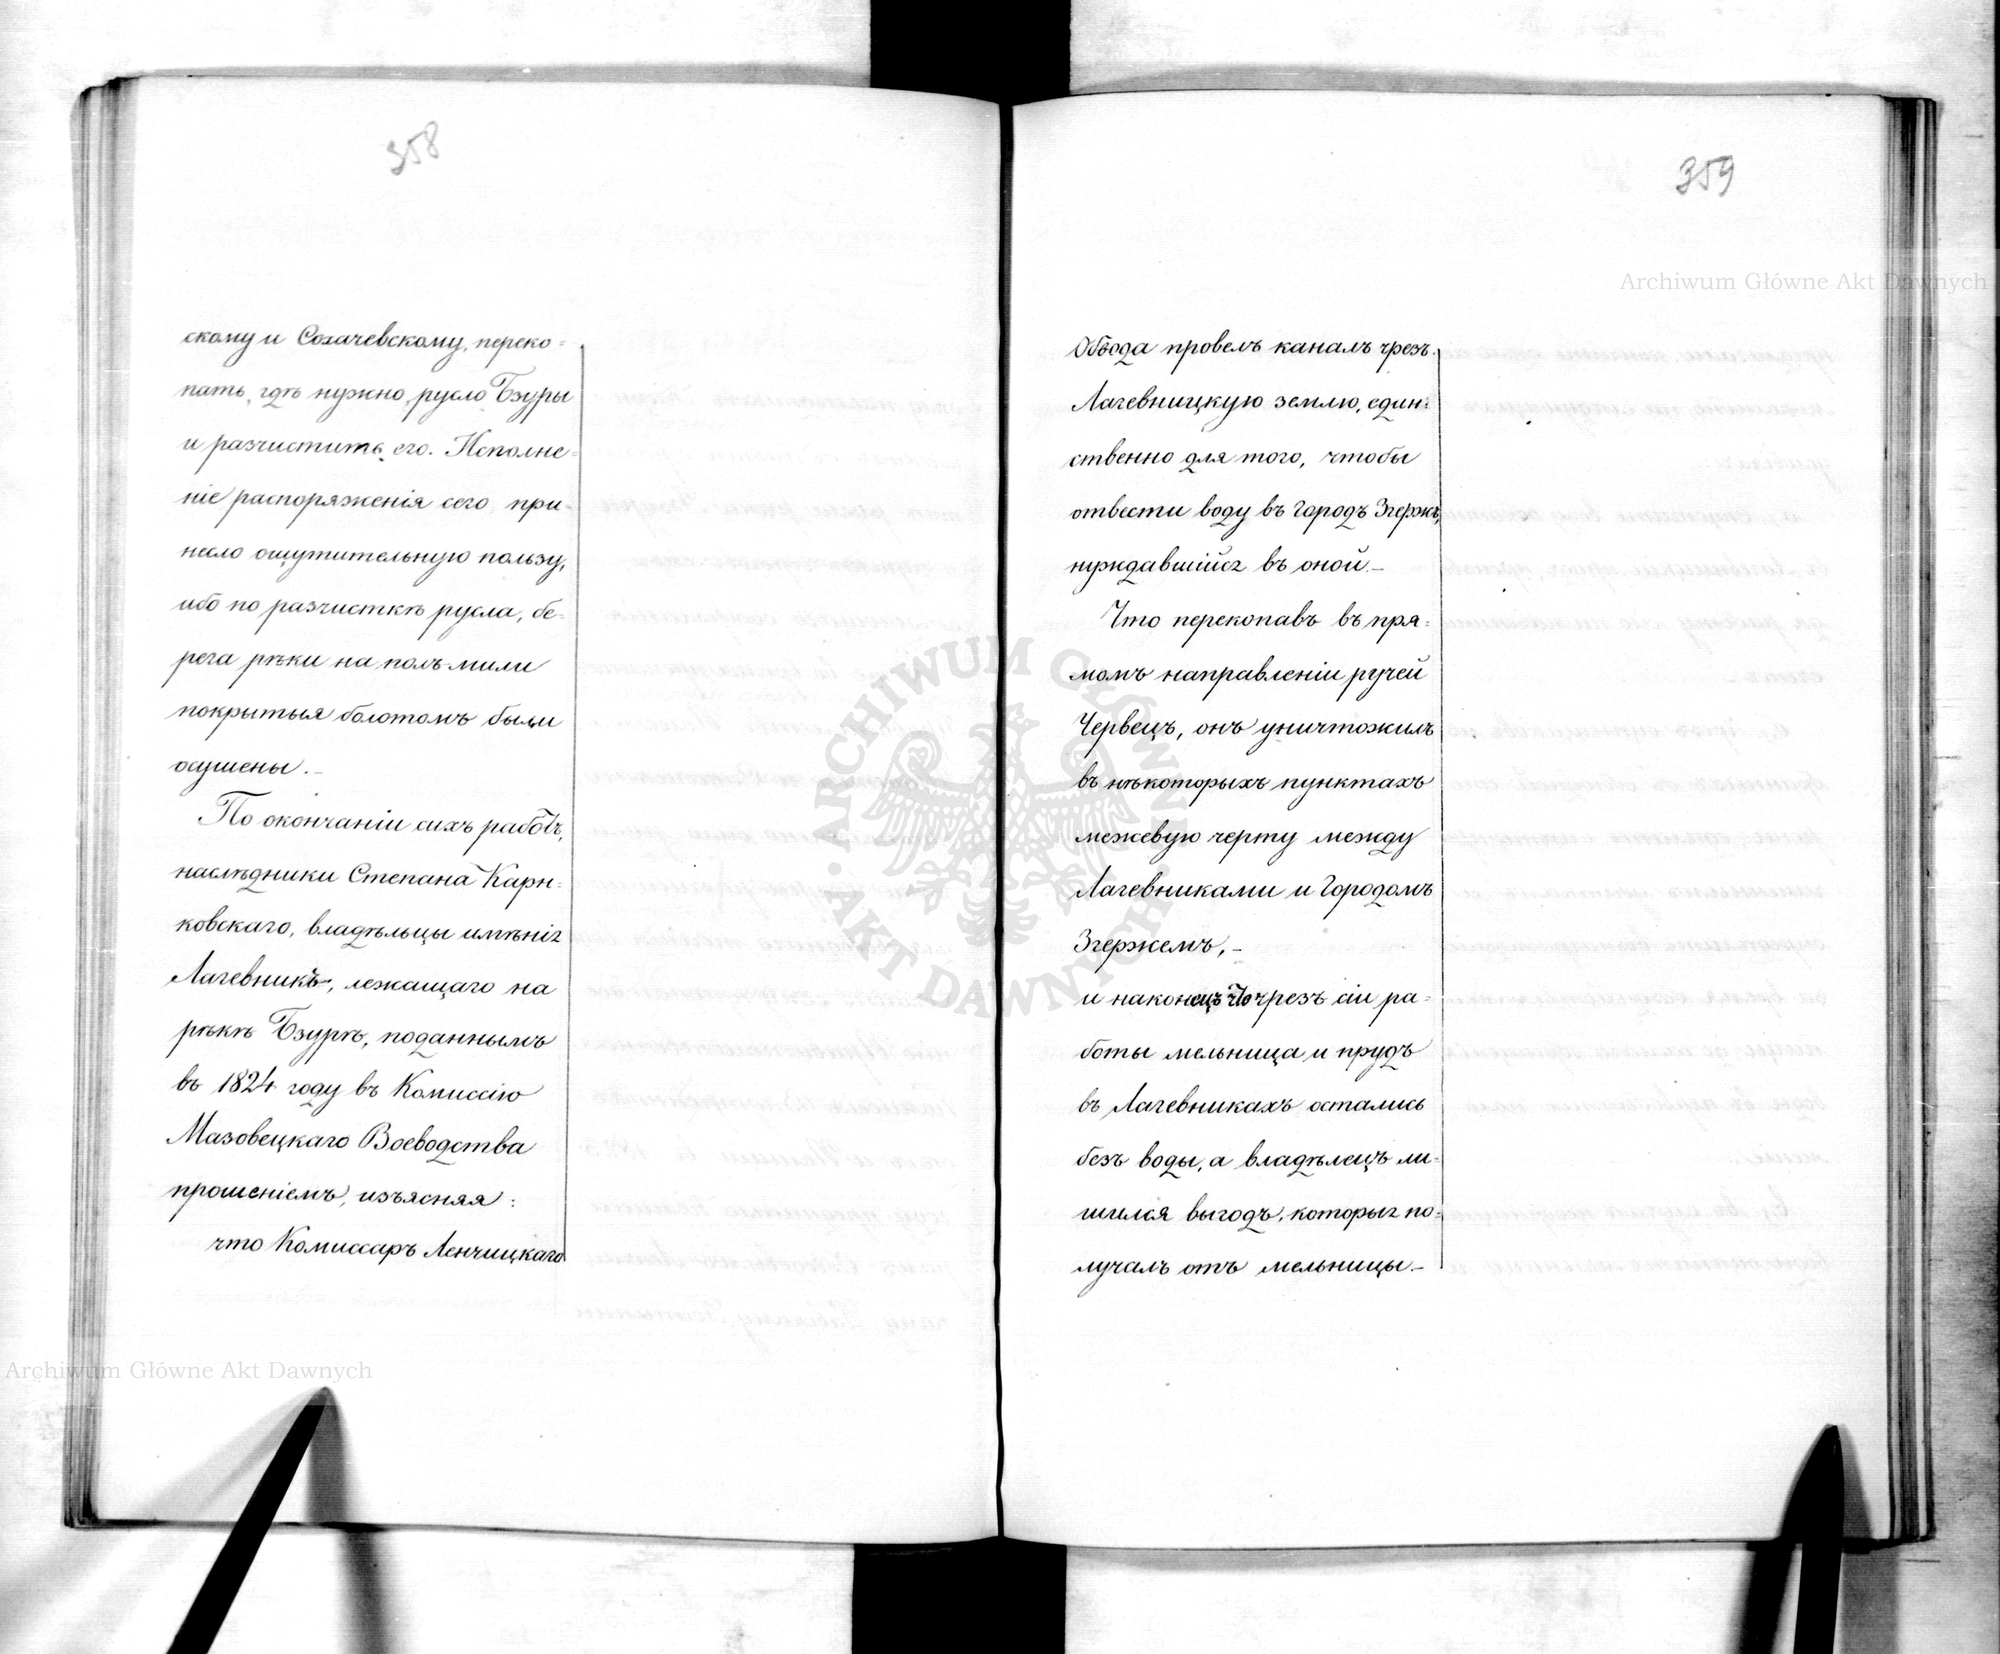 358
скому и Сохачевскому, переко=
пать, гдѣ нужно, русло Бзуры
и разчистить его. Исполне=
ніе распоряженія сего при=
несло ощутительную пользу,
ибо по разчисткѣ русла, бе=
рега рѣки на полъ-мили
покрытыя болотомъ были
осушены.-
По окончаніи сихъ работъ,
наслѣдники Степана Карн=
ковскаго, владѣльцы имѣнія
Лагевникъ, лежащаго на
рѣкѣ Бзурѣ, поданнымъ
въ 1824 году въ Комиссію
Мазовецкаго Воеводства
прошеніемъ, изъясняя:
что Комиссаръ Ленчицкаго
359
Обвода провелъ каналъ чрезъ
Лагевницкую землю, един=
ственно для того, чтобы
отвести воду въ Городъ Згержъ,
нуждавшійся въ оной.-
Что перекопавъ въ пря=
момъ направленіи ручей
Червецъ, онъ уничтожилъ
въ нѣкоторыхъ пунктахъ
межевую черту между
Лагевниками и Городомъ
Згержемъ,-
и наконецъ что чрезъ сіи ра=
боты мельница и прудъ
въ Лагевникахъ остались
безъ воды, а владѣлецъ ли=
шился выгодъ, которыя по=
лучалъ отъ мельницы.-
Archiwum Główne Akt Dawnych
Archiwum Główne Akt Dawnych
ARCHIWUM GŁÓWNE AKT DAWNYCH